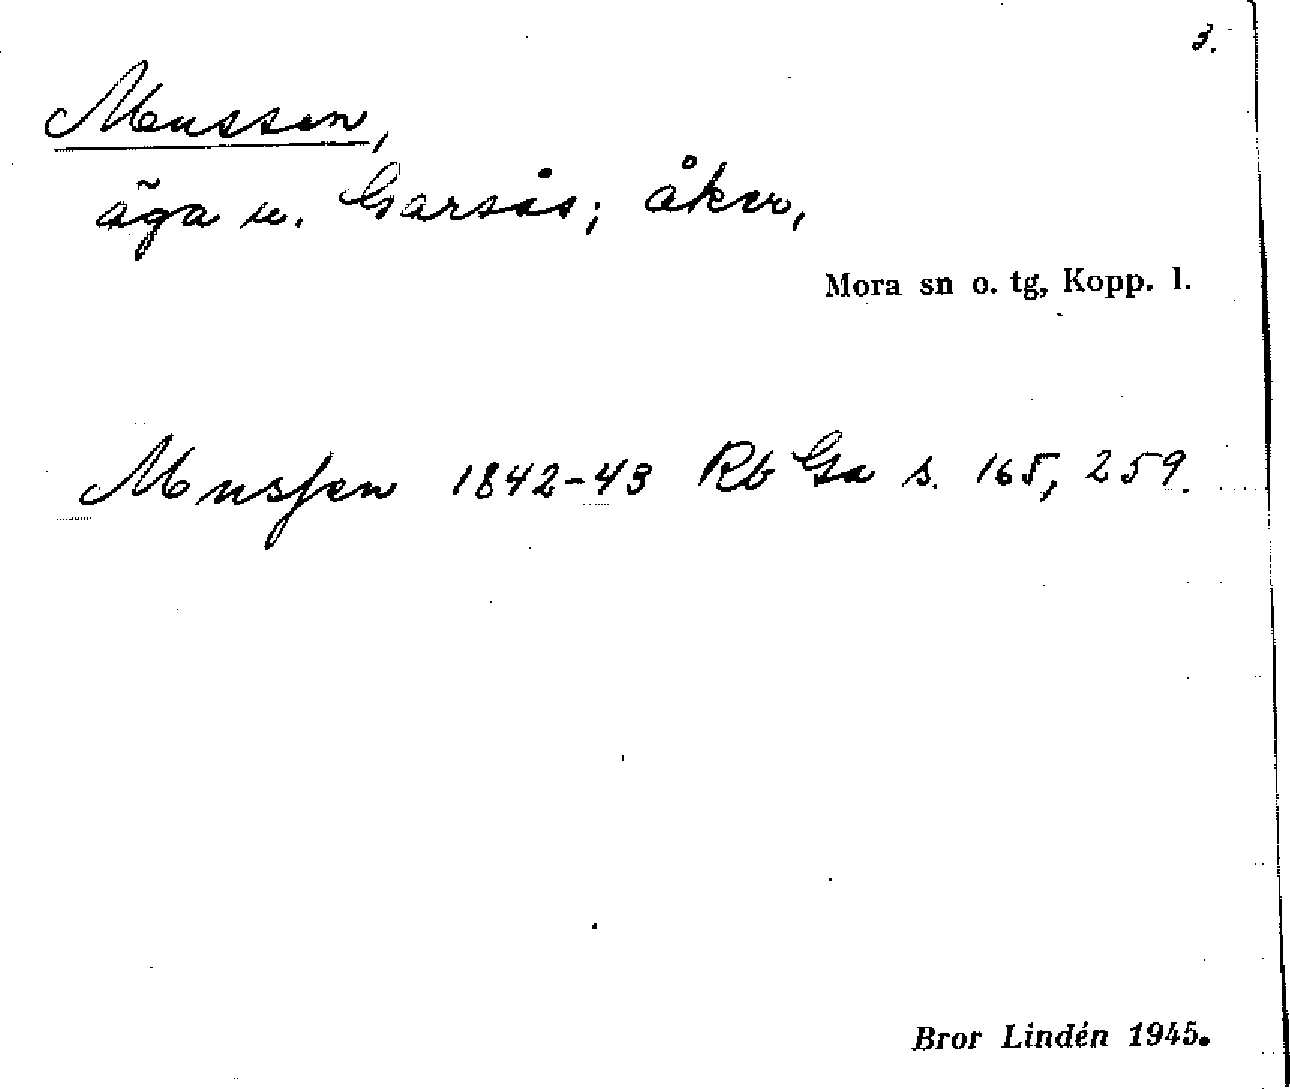 3.
Mussen,
äga u. Garsås; åker,
Mora sn o. tg, Kopp. l.
Mussen 1842-43 Rb Ga s. 165, 259.
Bror Lindén 1945.